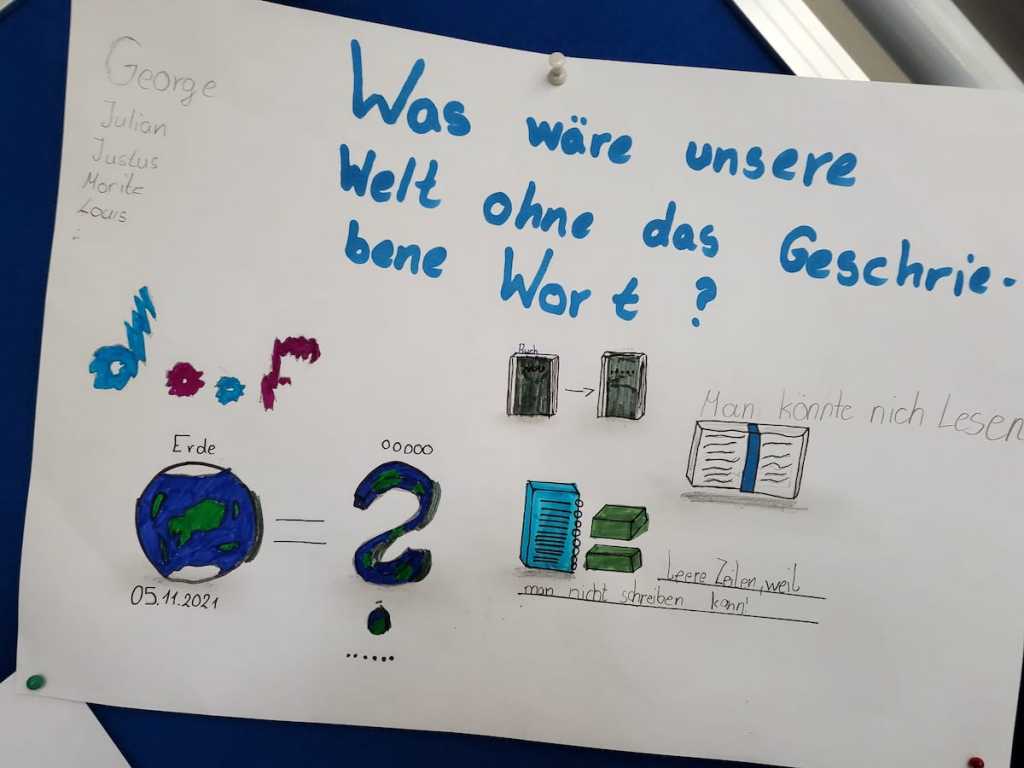 George
Julian
Justus
Moritz
Louis
Was wäre unsere
Welt ohne das Geschrie-
bene Wort ?
Buch
Man könnte nich Lesen
Erde
ooooo
05.11.2021
......
Leere Zeilen, weil
man nicht schreiben kann!